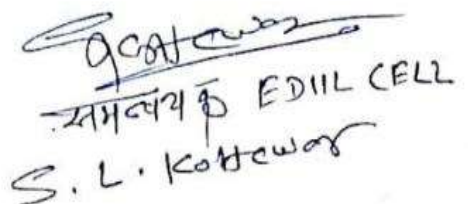 समन्वयक EDIIL CELL
S. L. Kottewar